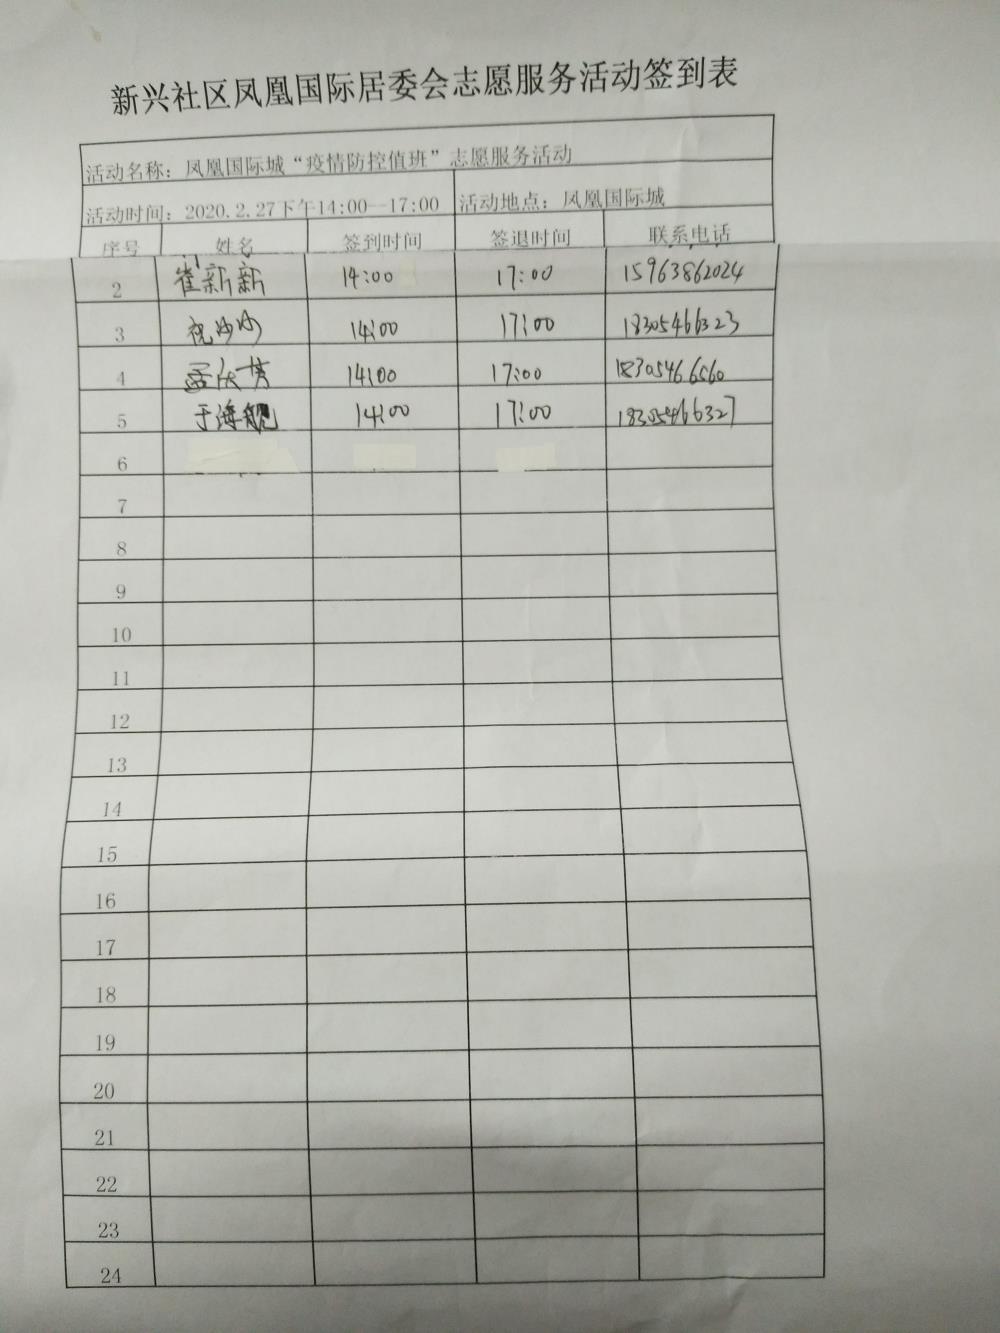 新兴社区凤凰国际居委会志愿服务活动签到表
活动名称：凤凰国际城“疫情防控值班”志愿服务活动
活动时间：2020.2.27下午14:00--17:00 活动地点：凤凰国际城
序号 姓名 签到时间 签退时间 联系电话
2 崔新新 14:00 17:00 15963862024
3 祝沙沙 14:00 17:00 18305466323
4 孟庆芳 14:00 17:00 18305466560
5 于海舰 14:00 17:00 18305466327
6
7
8
9
10
11
12
13
14
15
16
17
18
19
20
21
22
23
24